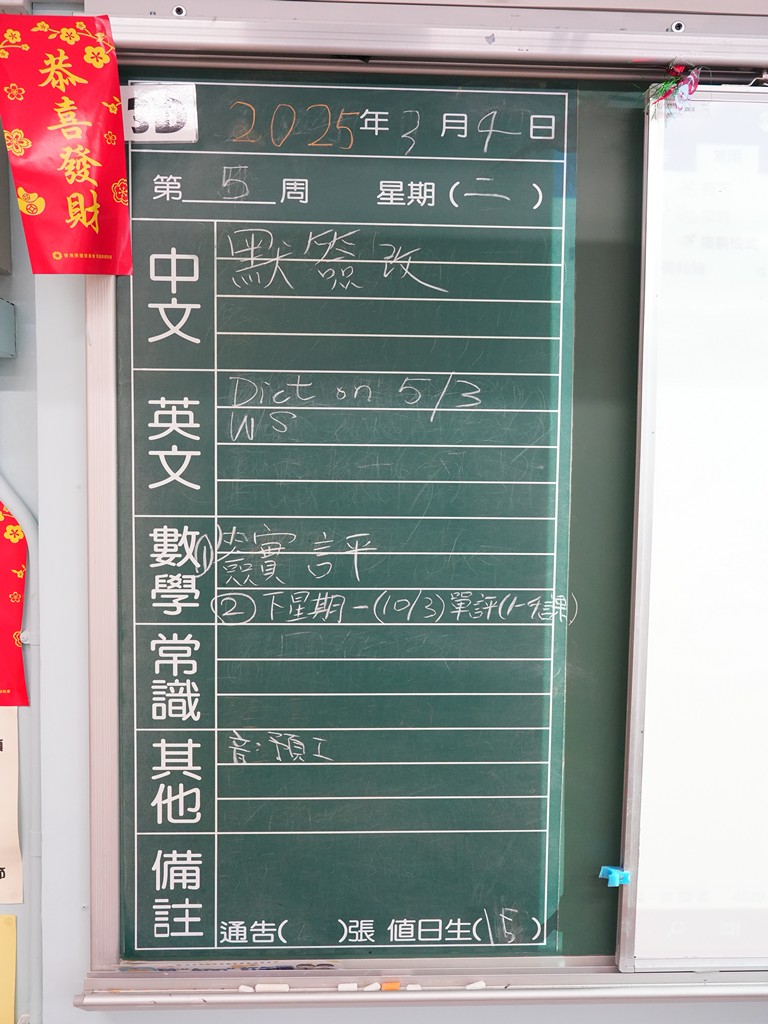 恭喜發財
3D
2025年3月4日
第5周 星期(二)
中文
默簽改
英文
Dict on 5/3
WS
數學
② 下星期一(10/3)單評(1-4課)
常識
其他
音:預工
備註
通告( )張 值日生(15)